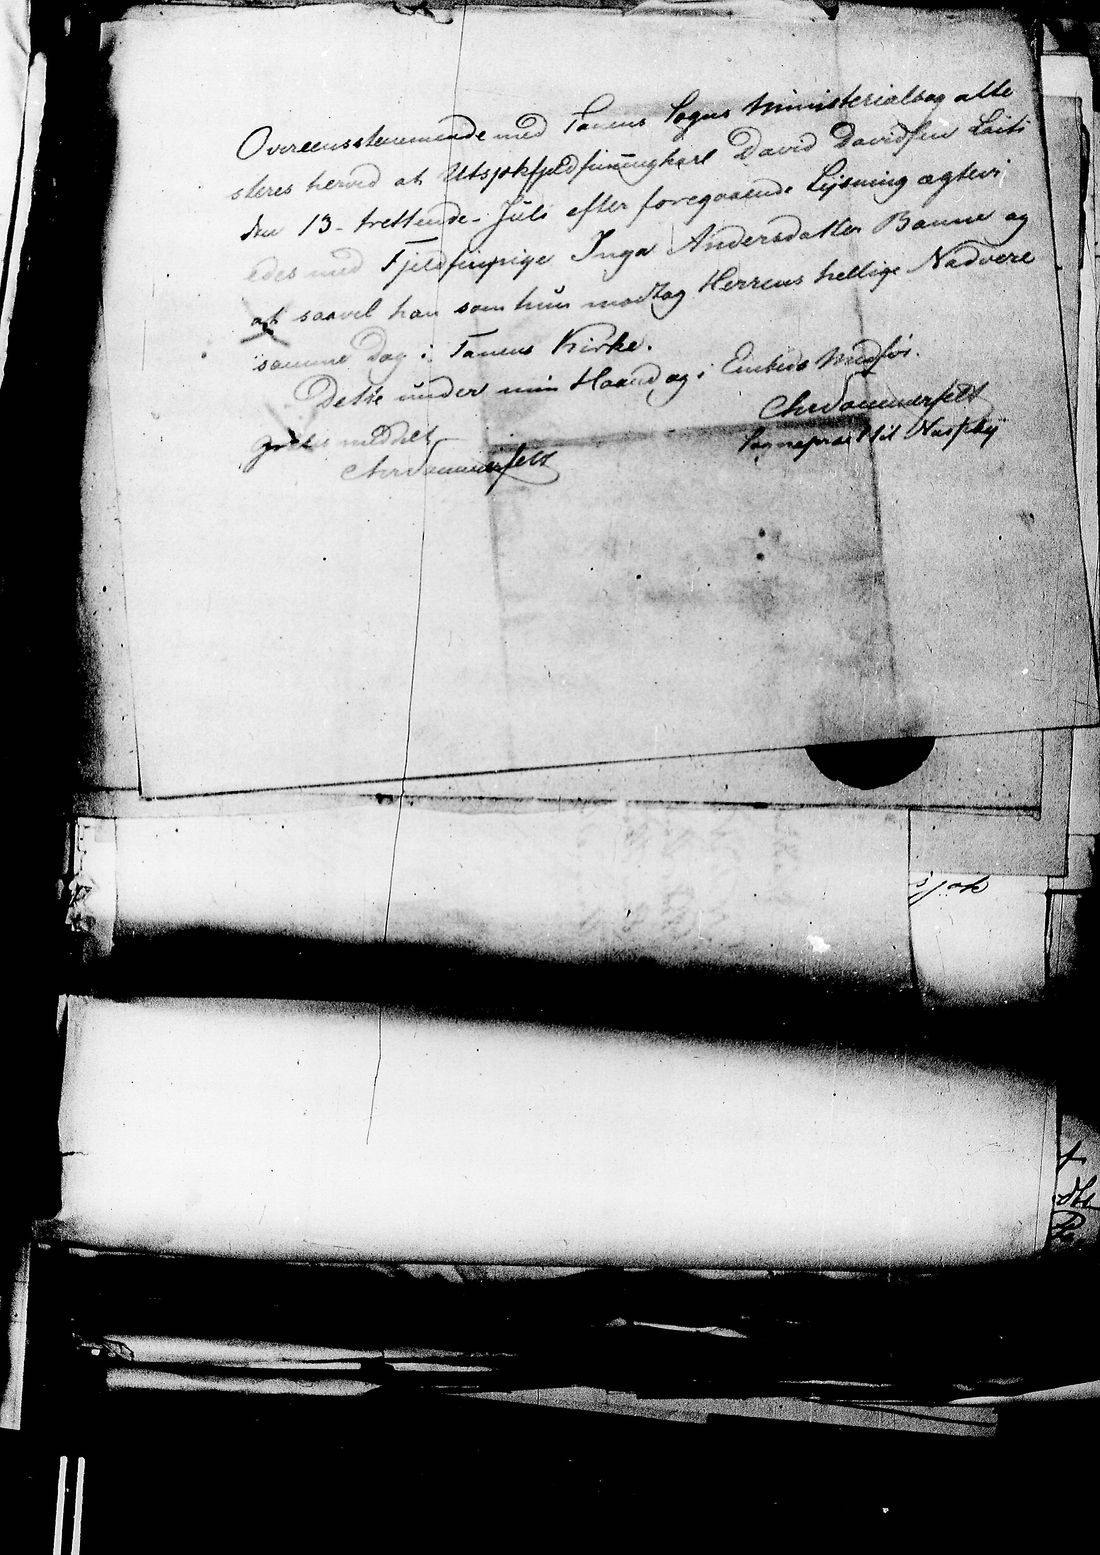 Overeensstemmende med Tanens Sogns Ministerialbog atte
steres herved at Utsjokfjeldfinungkarl David Davidsen Laiti
den 13- trettende- Juli efter foregaaende Lysning ægtevi
edes med Fjeldfinpige Inga Andersdatter Banne og
at saavel han som hun modtog Herrens hellige Nadvere
samme Dag i Tanens Kirke.
Dette under min Haand og i Embeds Medfør.
Chr Sommerfelt
Sognepræst til Næsseby
gratis meddelt
Chr Sommerfelt
sjok